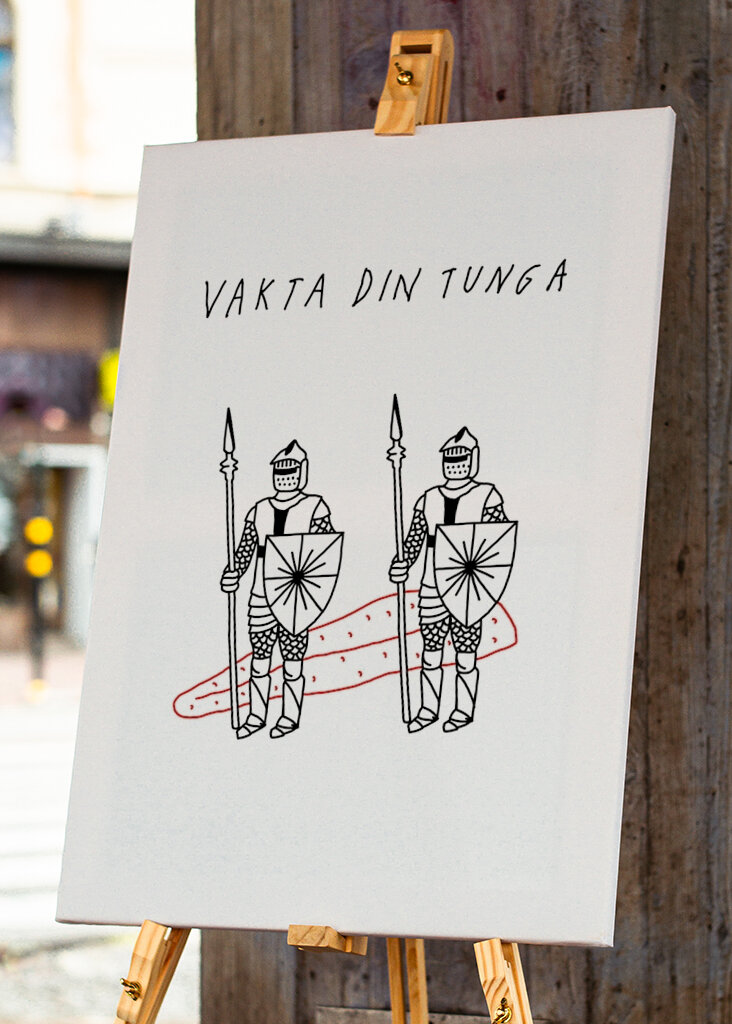 VAKTA DIN TUNGA